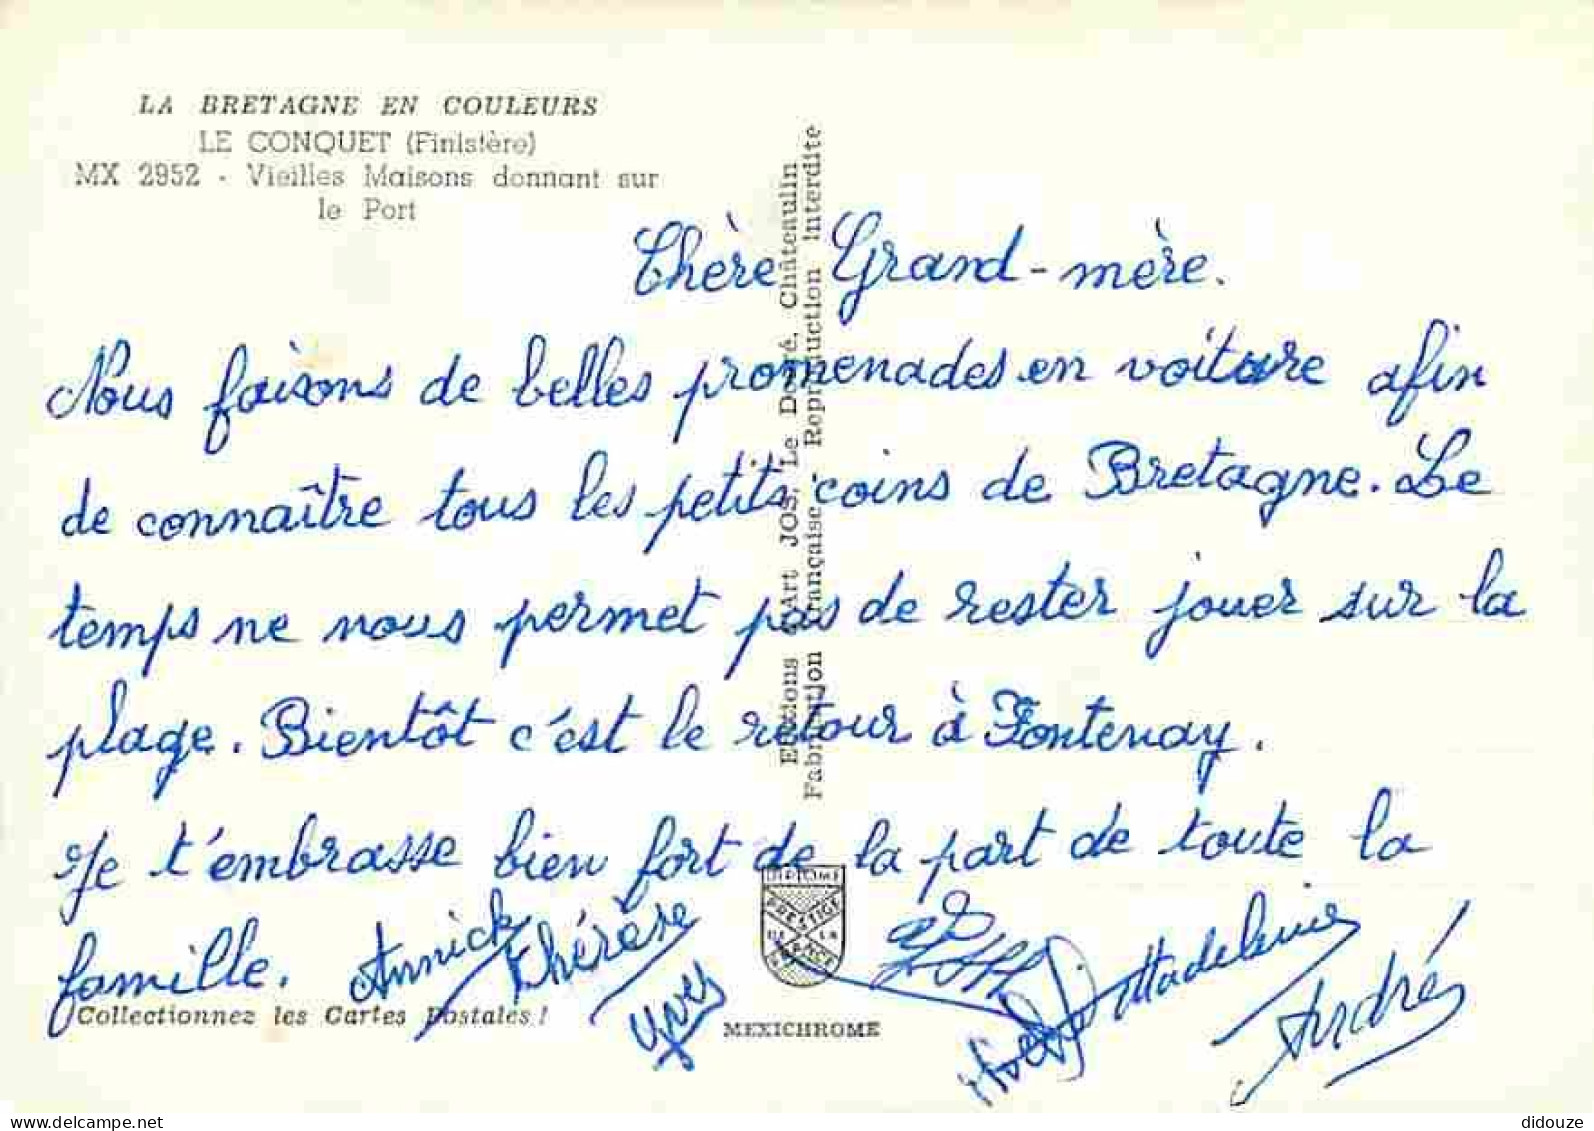 LA BRETAGNE EN COULEURS
LE CONQUET (Finistère)
MX 2952 - Vieilles Maisons donnant sur
le Port
Editions d'Art JOS, Le Doaré, Châteaulin
Fabrication Française - Reproduction Interdite
Chère Grand-mère.
Nous faisons de belles promenades en voiture afin
de connaître tous les petits coins de Bretagne. Le
temps ne nous permet pas de rester jouer sur la
plage. Bientôt c'est le retour à Fontenay.
Je t'embrasse bien fort de la part de toute la
famille. Annick Thérèse
Yves
Madeleine
André
DIPLOME
PRESTIGE
DE LA
FRANCE
Collectionnez les Cartes Postales !
MEXICHROME
delcampe.net
didouze